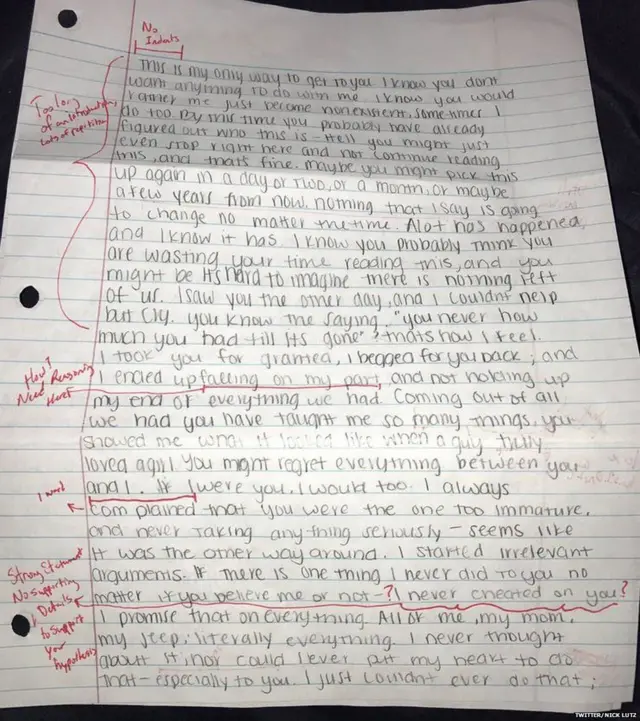 No
Indents
This is my only way to get to you I know you dont
want anything to do with me I know you would
rather me just become nonexistent, sometimes I
do too. By this time you probably have already
figured out who this is - Hell you might just
even stop right here and not continue reading
this, and thats fine. maybe you might pick this
up again in a day or two, or a month, or maybe
a few years from now. nothing that I say is going
to change no matter the time. Alot has happened,
and I know it has I know you probably think you
are wasting your time reading this, and you
might be Its hard to imagine there is nothing left
of us. I saw you the other day, and I couldnt help
but cry. you know the saying, "you never how
much you had till its gone" thats how I feel.
I took you for granted, I begged for you back, and
I ended up falling on my part, and not holding up
my end of everything we had. Coming out of all
we had you have taught me so many things. you
showed me what it looked like when a guy truly
loved a girl. You might regret everything between you
and I. If I were you. I would too. I always
complained that you were the one too immature,
and never taking anything seriously - seems like
it was the other way around. I started irrelevant
arguments. If there is one thing I never did to you no
matter if you believe me or not-? I never cheated on you?
I promise that on everything. All of me, my mom,
my step, literally everything. I never thought
about it, nor could I ever put my heart to do
that - especially to you. I just couldnt ever do that;
Too long
of an introduction,
lots of repetition
How?
Need Reasoning
Here!
1 word
Strong Statement
No supporting
Details
to support
your
hypothesis
TWITTER/NICK LUTZ